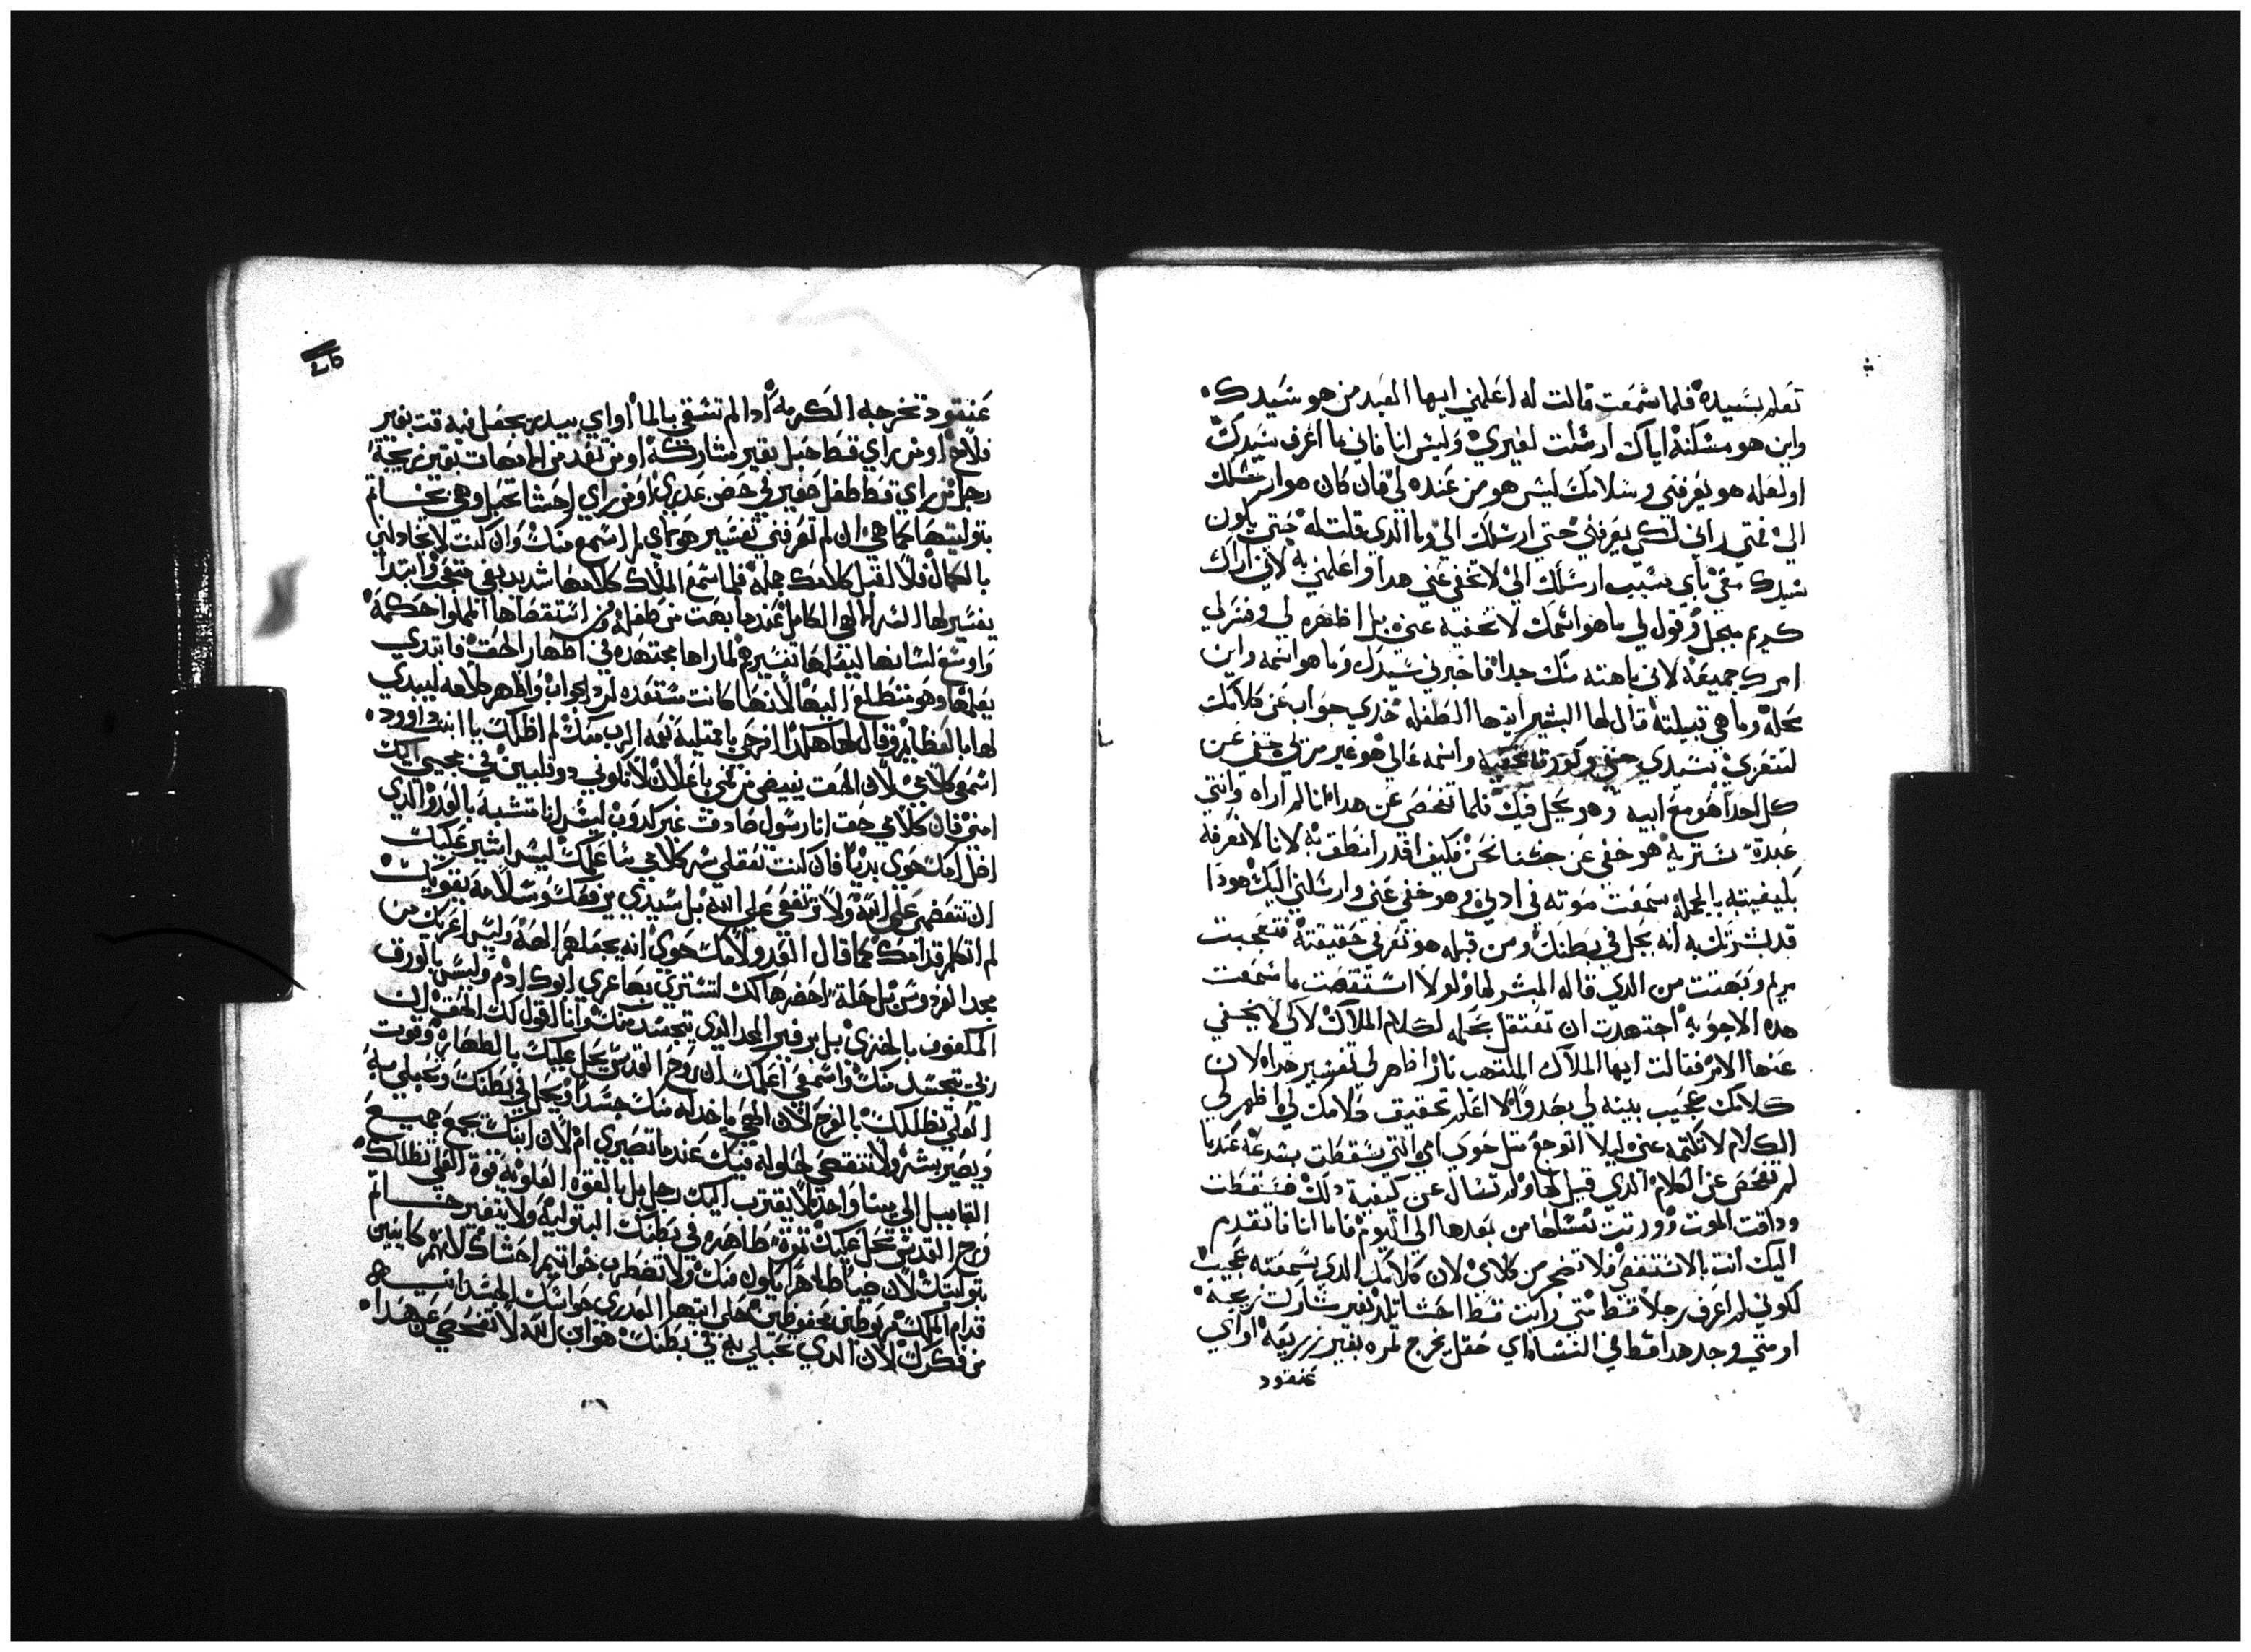 تعلم بسيده فلما سمعت قالت له اعلمني ايها العبد من هو سيدك
واين هو مسكنه اياك ارسلت لغيري وليس انا فاني ما اعرف سيدك
او لعله هو يعرفني وسلامك ليس هو من عنده لي فان كان هو ارسلك
الي فمتي راني لكي يعرفني حتي ارسلك الي وما الدي قلت له حتي يكون
سيدك معي باي سبب ارسلك الي لا تخفي عني هدا واعلمني به لاني اراك
كريم مبجل وقول لي ما هو اسمك لا تخفيه عني بل اظهره لي وفسر لي
امرك جميعه لاني باهته منك جدا فاخبرني سيدك وما هو اسمه واين
محله وما هي قبيلته قال لها البشير ايتها الطفله خدي جواب عن كلامك
لتتعزي سيدي خفي واسمه عالي هو غير مرئي خفي عن
كل احدا هو مع ابيه وهو يحل فيك فلما تفحص عن هدا انا لم اراه وانتي
عبدة تستريه هو خفي عن حسنا نحن فكيف اقدر انطق به لانا لا نعرفه
بكيفيته بالجمله سمعت صوته في ادني وهو خفي عني وارسلني اليك هودا
قد بشرتك به انه يحل في بطنك ومن قبله هو تعرفي حقيقته فتعجبت
مريم وبهتت من الدي قاله المبشر لها ولولا استقصت ما سمعت
هده الاجوبه اجتهدت ان تعتقل بجمله لكلام الملاك لاكي لا يخفي
عنها الامر فقالت ايها الملاك الملتهب نار اظهر لي تفسير هدا لان
كلامك عجيب بينه لي بهدوا لا اعلم تحقيق كلامك لي اظهر لي
الكلام لا تكتمه عني ليلا اتوجع متل حوي امي التي سقطت بسرعه عندما
لم تفحص عن الكلام الدي قيل لها ولم تسال عن كيفية دلك فسقطت
وداقت الموت وورتت نسلها من بعدها الي اليوم فاما انا فاتقدم
اليك انت بالاستقصي فلا تضجر من كلامي لان كلامك الدي سمعته عجيب
لكوني لم اعرف رجلا قط متي رايت قط احشا تلد بغير شاركت زيجه
او متي وجد هدا قط في النسا او اي حقل يخرج تمره بغير زريعه او اي
عنقود
عنقود تخرجه الكرمه ادا لم تسقي بالما او اي بيدر يجعل فيه قت بغير
فلاح او من راي قط حبل بغير مشاركه او من تعد من الامهات بغير زيجة
رجل من راي قط طفل صغير في حضن عدري او من راي احشا تحبل وهي بخاتم
بتوليتها كما هي ان لم تعرفني تفسير هو كما ي لم اسمع منك وان كنت لا تجاداني
بالكمال فلا اقبل كلامك جمله فلما سمع الملاك كلامها شديد بقي متعجب وابتدا
يفسر لها السر الالهي الكامل عندما بهت من طفله ومن استقصاها المملوا حكمه
واوسع لسانها ليفعلها تفسيره لما راها مجتهده في اظهار الحق فابتدي
يعلمها وهو متطلع اليها لانها كانت مستعده لرد الجواب واظهر كلامه ليبدي
لها بالعظايم وقال لها هكدا افرحي يا ممتليه نعمه الرب معك لم اظلك يا ابنت داوود
اسمعي كلامي لان الحق يفيض من فمي باعلان لا تكوني دو قلبين في مجيي اليك
امني فان كلامي حق انا رسول صادق غير كدوب ليس انا متشبه بالعدو الدي
اضل امك حوي بديا فان كنت تعقلي سر كلامي سا علمك ليس اشير عليك
ان تتعظمي علي الله ولا ترتفعي علي الله بل سيدي يرفعك وسلامه يقويك
لم اتكلم قدامك كما قال العدو لامك حوي انه يجعلهم الهة وليس اعريك من
مجد الفردوس بل حلة احضرها لك لتستري بها عري ابوك ادم وليس بالورق
الملفوف بالخزي بل برفير المجد الدي يتجسد منك وانا اقول لك الحق ان
ربي تجسد منك واسمعي اعلمك ان روح القدس يحل عليك بالطهاره وقوت
العلي تظللك بالفرح لان الهي ياخد له منك جسدا ويحل في بطنك وتحبلي به
ويصير بشر ولا تنقصي لحلوله فيك عندما تصيري ام لان ابنك يجمع جميع
القبايل الي بيتا واحد لا يقترب اليك رجل بل بالقوه العلويه قوة العلي تظللك
روح القدس تحل عليك تمرة طاهره في بطنك البتوليه ولا يتغير خاتم
بتوليتك لان ضيا طاهرا يكون منك ولا تضطرب خواتيم احشاك لانهم كاينين
قدام الملك مربوطين محفوظين حلي ايتها العدري حواسك الجسدانيه
من فكرك لان الدي تحبلي به في بطنك هو ابن الله لا تفحصي عن هدا